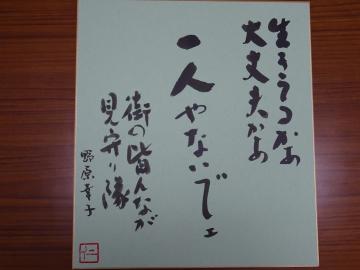 生きてるかあ
大丈夫かあ
一人やないでェ
街の皆んなが
見守り隊
野原幸子